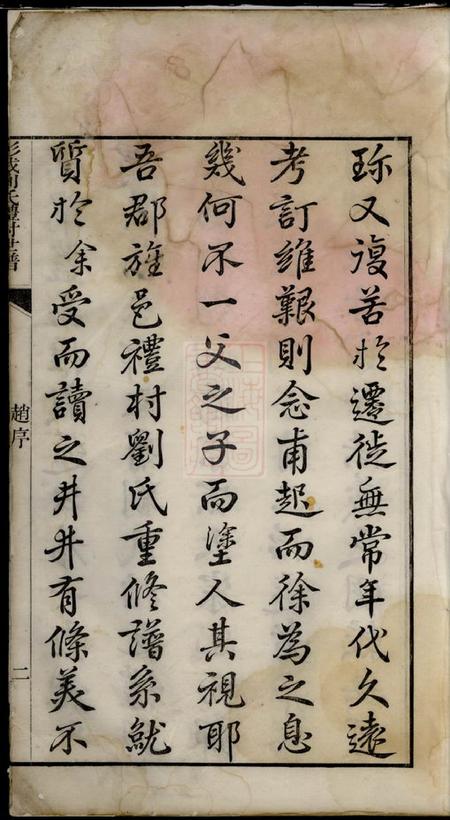 珎又復苦扵遷徙無常年代久遠
考訂維艱則念甫起而徐為之息
幾何不一父之子而塗人其視耶
吾郡旌邑禮村劉氏重修譜系就
質扵余受而讀之井井有條美不
彭城劉氏禮村世譜
趙序
二